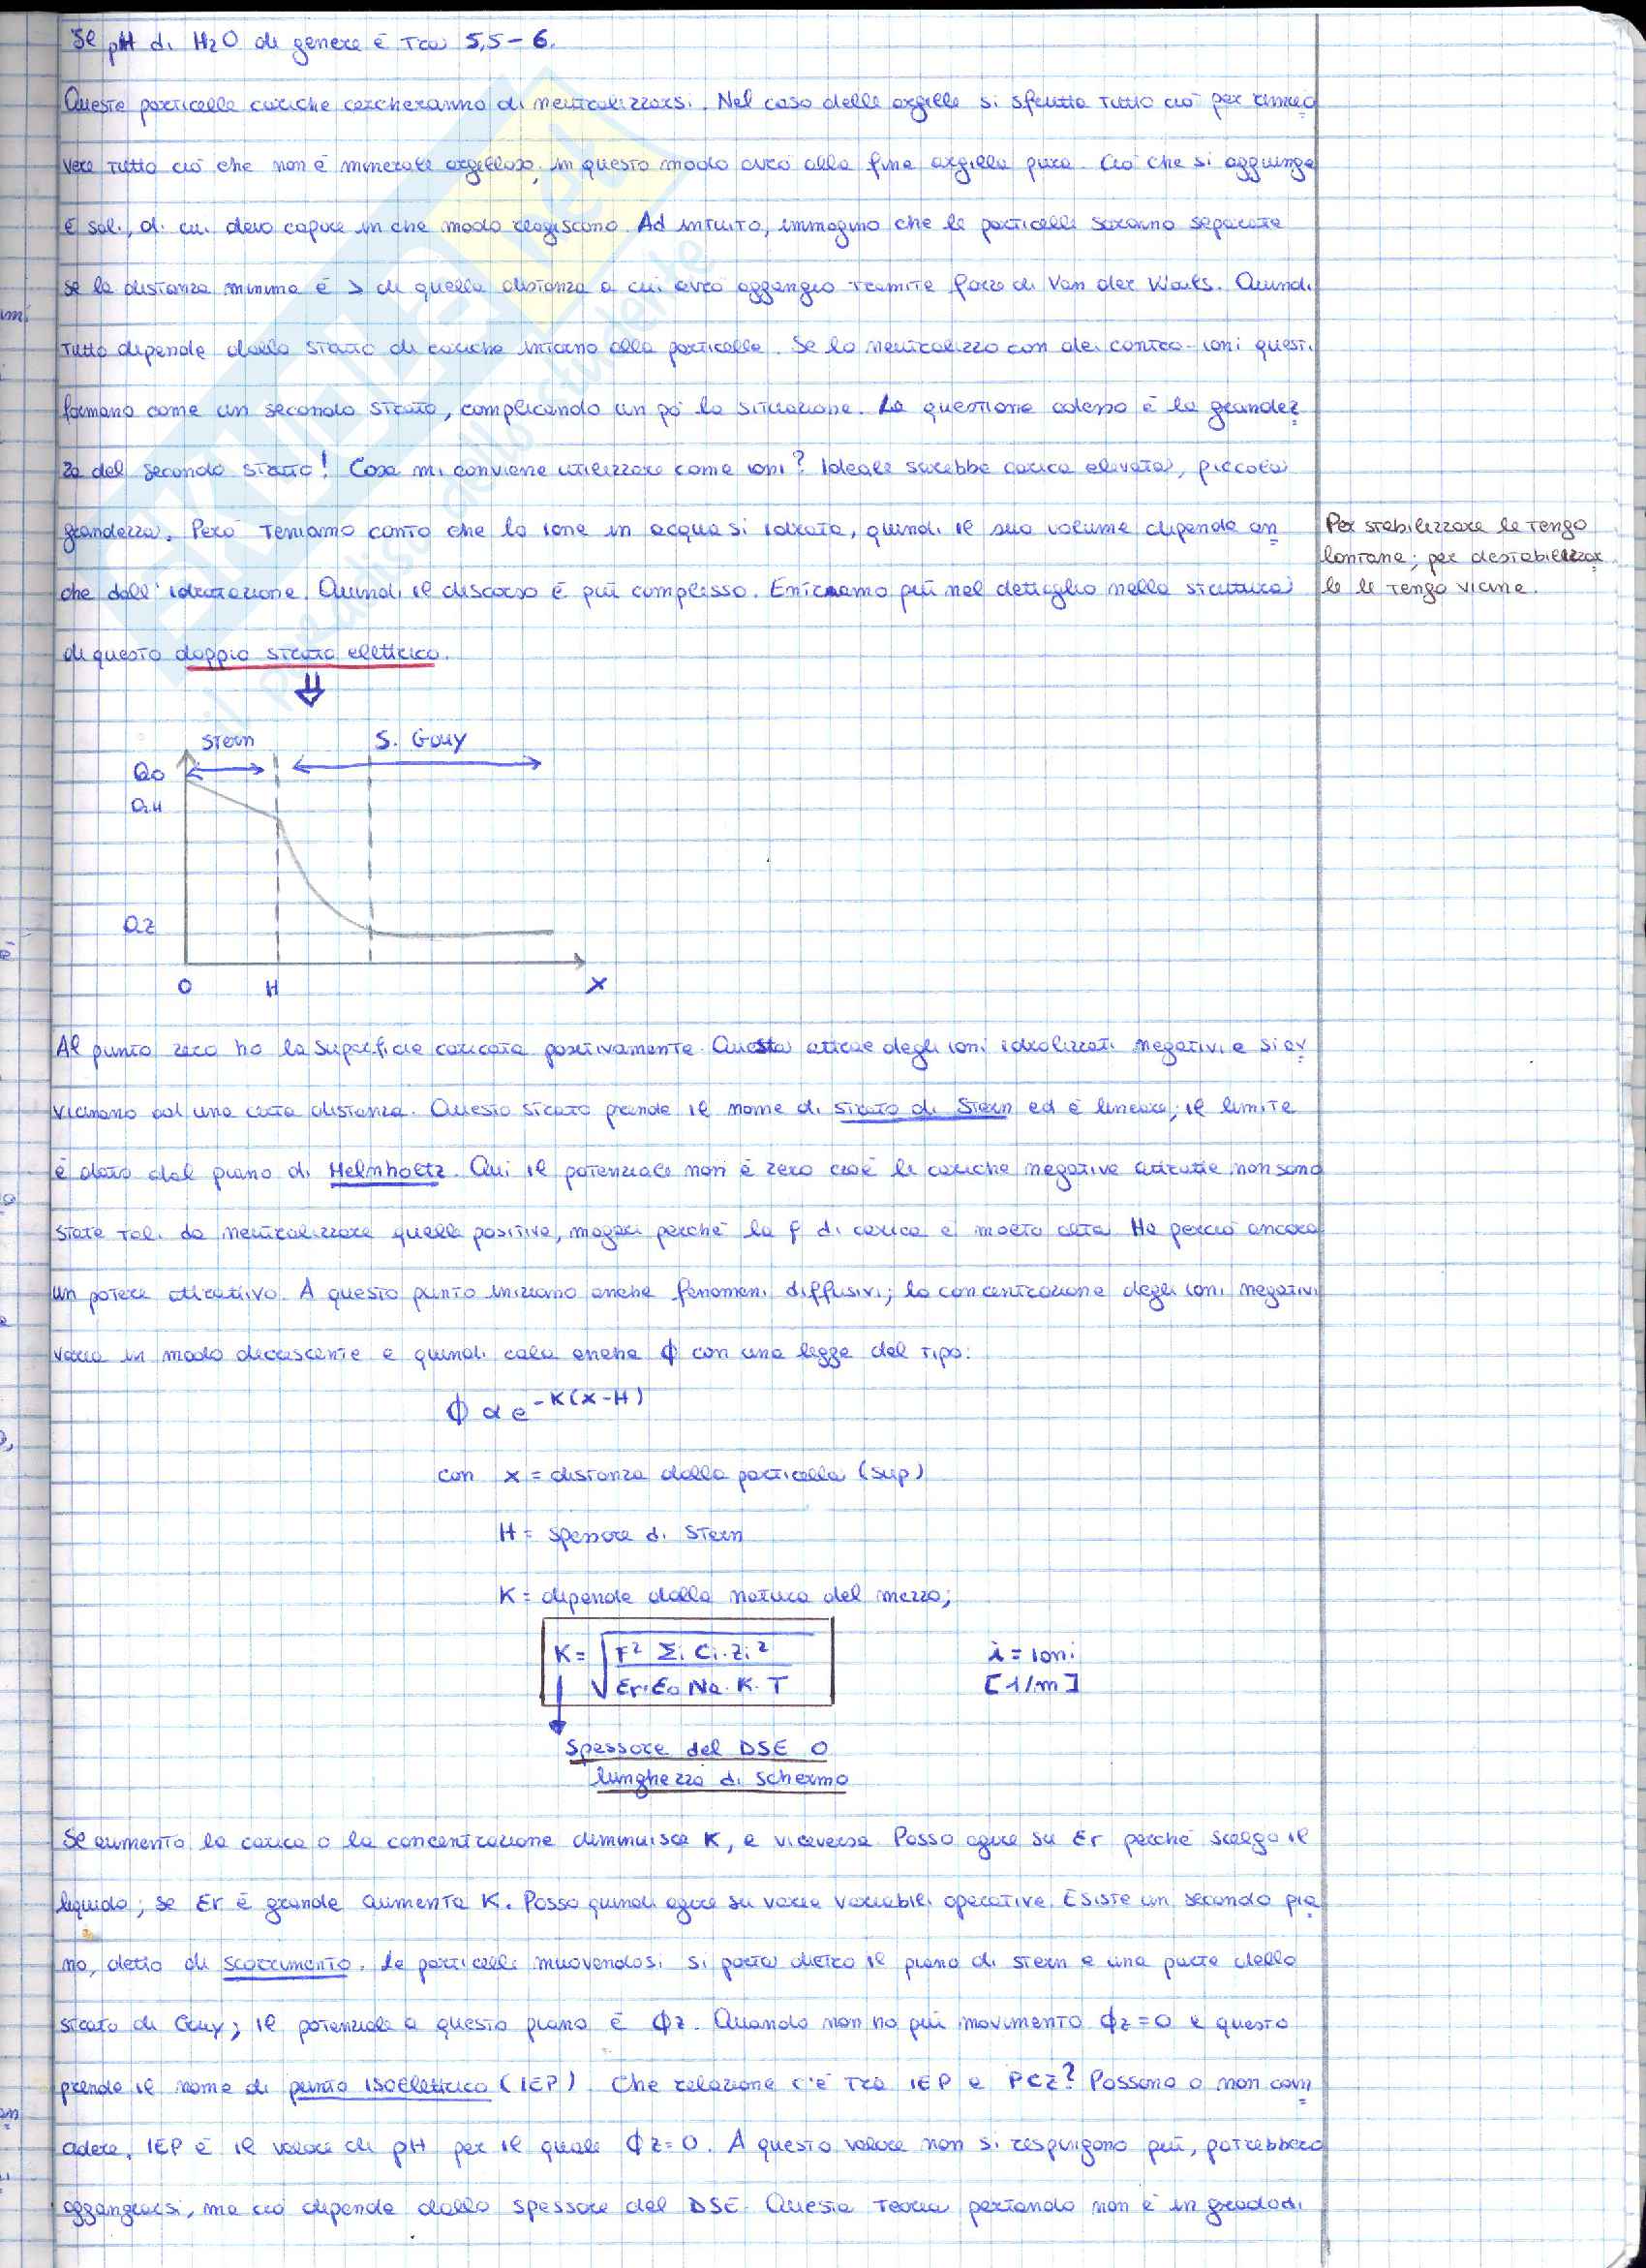 Se pH di H2O di genere è tra 5,5-6.
Queste particelle cariche cercheranno di neutralizzarsi. Nel caso delle argille si sfrutta tutto ciò per rimuo
vere tutto ciò che non è minerale argilloso, in questo modo avrò alla fine argilla pura. Ciò che si aggiunge
è sali, di cui devo capire in che modo reagiscono. Ad intuito, immagino che le particelle saranno separate
se la distanza minima è > di quella distanza a cui avrò aggangio tramite forze di Van der Waals. Quindi
tutto dipende dallo strato di cariche intorno alla particella. Se lo neutralizzo con dei contro-ioni questi
formano come un secondo strato, complicando un pò la situazione. La questione adesso è la grandez
za del secondo strato! Cosa mi conviene utilizzare come ioni? Ideale sarebbe carica elevata, piccola
grandezza. Però teniamo conto che lo ione in acqua si idrata, quindi il suo volume dipende an
che dall'idratazione. Quindi il discorso è più complesso. Entriamo più nel dettaglio nella struttura
di questo doppio strato elettrico.
Per stabilizzare le tengo
lontane; per destabilizzar
le le tengo vicine.
Stern
S. Gouy
O
H
X
Al punto zero ho la superficie caricata positivamente. Questa attrae degli ioni idrolizzati negativi e si av
vicinano ad una certa distanza. Questo strato prende il nome di strato di Stern ed è lineare; il limite
è dato dal piano di Helmholtz. Qui il potenziale non è zero cioè le cariche negative attratte non sono
state tali da neutralizzare quelle positive, magari perchè la f di carica è molto alta. Ha perciò ancora
un potere attrattivo. A questo punto iniziano anche fenomeni diffusivi; la concentrazione degli ioni negativi
varia in modo decrescente e quindi cala anche ϕ con una legge del tipo:
ϕ α e^-K(x-H)
con x = distanza dalla particella (sup)
H = spessore di Stern
K = dipende dalla natura del mezzo;
K = √(F² Σi Ci·Zi² / Er·E0 Na·K·T)
i = ioni
[1/m]
Spessore del DSE o
lunghezza di schermo
Se aumento la carica o la concentrazione diminuisce K, e viceversa. Posso agire su Er perchè scelgo il
liquido; se Er è grande aumenta K. Posso quindi agire su varie variabili operative. Esiste un secondo pia
no, detto di scorrimento. Le particelle muovendosi si porta dietro il piano di Stern e una parte dello
strato di Gouy; il potenziale a questo piano è ϕz. Quando non ho più movimento ϕz=0 e questo
prende il nome di punto isoelettrico (IEP). Che relazione c'è tra IEP e PCZ? Possono o non coin
cidere. IEP è il valore di pH per il quale ϕz=0. A questo valore non si respingono più, potrebbero
aggangiarsi, ma ciò dipende dallo spessore del DSE. Questa teoria pertando non è in grado di